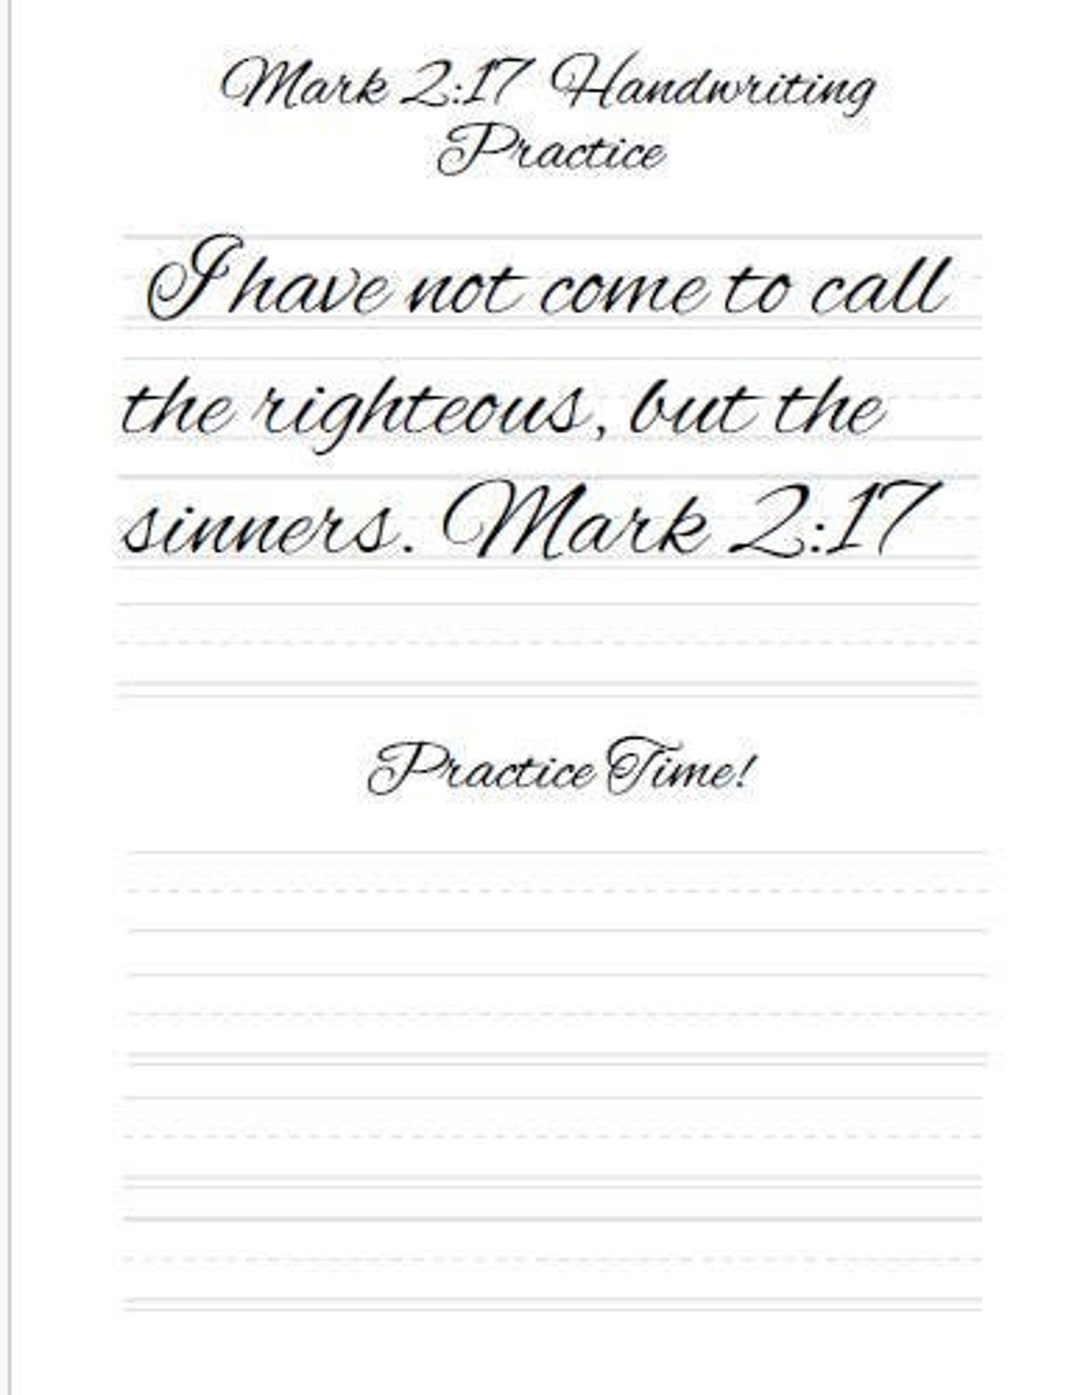 Mark 2:17 Handwriting
Practice
I have not come to call
the righteous, but the
sinners. Mark 2:17
Practice Time!